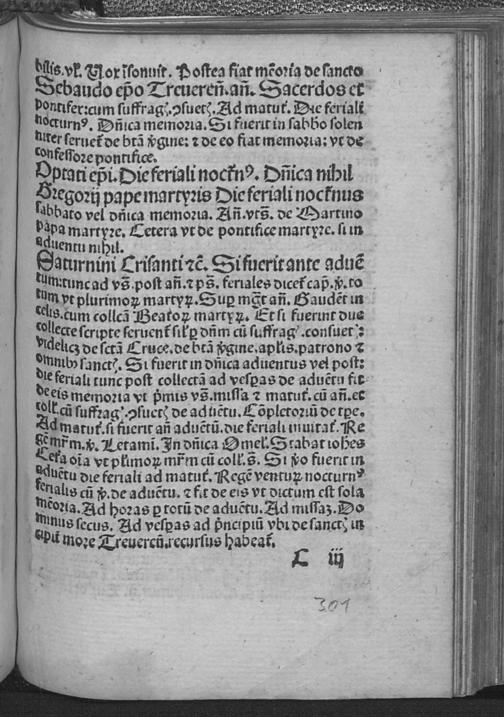 bilis. vł. Uox īsonuit. Postea fiat mēoria de sancto
Sebaudo ep̄o Treuereñ. añ. Sacerdos et
pontifex: cum suffragꝭ. ↄsuetꝭ. Ad matuꝉ. Die feriali
nocturnꝰ. Dñica memoria. Si fuerit in sabbo solen
niter serueꝉ de btā v̄gine: ⁊ de eo fiat memoria: vt de
confessore pontifice.
Optati ep̄i. Die feriali noctꝛ̄nꝰ. Dñica nihil
Gregorij pape martyris Die feriali noct̄nus
sabbato vel dñica memoria. Añ. vts̄. de Martino
papa martyre. Cetera vt de pontifice martyre. si in
aduentu nihil.
Saturnini Crisanti ⁊c̄. Si fuerit ante aduē
tum: tunc ad vs̄. post añ. ⁊ ps̄. feriales diceꝉ cap̄. ꝟ. to
tum vt plurimoꝝ martyꝝ. Suꝑ mḡt añ. Gaudēt in
celis. cum collcā Beatoꝝ martyꝝ. Et si fuerint due
collecte scripte seruenꝉ sił ꝑ dñm cū suffragꝭ. consuetꝭ:
videlicꝫ de sctā Cruce. de btā v̄gine. apl̄is. patrono ⁊
omnibꝰ sanctꝭ. Si fuerit in dñica aduentus vel post:
die feriali tunc post collectā ad vesꝑas de aduētu fit
de eis memoria vt p̄mis vs̄. missa ⁊ matuꝉ. cū añ. et
coll̄. cū suffragꝭ. ↄsuetꝭ de aduētu. Cōpletoriū de tꝑe.
Ad matuꝉ. si fuerit añ aduētū. die feriali inuitaꝉ. Re
gē mr̄m. ꝟ. Letami. In dñica Omeł. Stabat iohēs
Cet̄a oīa vt pl̄imoꝝ mr̄m cū coll̄. s̄. Si ꝟo fuerit in
aduētu die feriali ad matuꝉ. Regē venturꝝ nocturnꝰ
ferialis cū ꝟ. de aduētu. ⁊ fit de eis vt dictum est sola
mēoria. Ad horas ꝑ totū de aduētu. Ad missaꝫ. Do
minus secus. Ad vesꝑas ad p̄ncipiū vbi de sanctꝭ in
cipit more Treuereñ. recursus habeaꝉ.
C iij
301